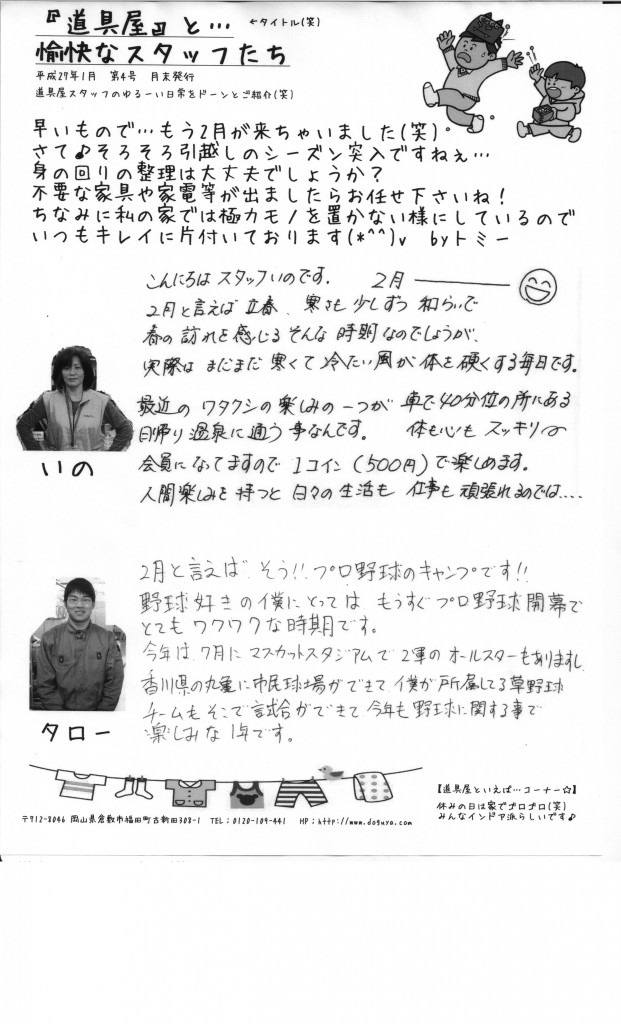 『道具屋』と… ←タイトル(笑)
愉快なスタッフたち
平成27年1月 第4号 月末発行
道具屋スタッフのゆるーい日常をドーンとご紹介(笑)
早いもので…もう2月が来ちゃいました(笑)。
さて♪そろそろ引越しのシーズン突入ですねぇ…
身の回りの整理は大丈夫でしょうか？
不要な家具や家電等が出ましたらお任せ下さいね！
ちなみに私の家では極力モノを置かない様にしているので
いつもキレイに片付いております(*^^)v byトミー
こんにちは スタッフいのです。 2月
2月と言えば 立春、寒さも 少しずつ 和らいで
春の訪れを感じる そんな 時期なのでしょうが、
実際は まだまだ 寒くて 冷たい風が 体を硬くする毎日です。
最近の ワタクシの楽しみの一つが 車で40分位の所にある
日帰り温泉に通う事なんです。 体も心も スッキリ〜
会員になってますので 1コイン(500円)で楽しめます。
人間楽しみを 持つと 日々の 生活も 仕事も 頑張れるのでは....
いの
2月と言えば、そう!!プロ野球のキャンプです!!
野球好きの僕にとっては、もうすぐプロ野球開幕で
とてもワクワクな時期です。
今年は、7月にマスカットスタジアムで2軍のオールスターもありますし、
香川県の丸亀に市民球場ができて、僕が所属してる草野球
チームもそこで試合ができて今年も野球に関する事で
楽しみな1年です。
タロー
【道具屋といえば…コーナー☆】
休みの日は家でゴロゴロ(笑)
みんなインドア派らしいです♪
〒712-8046 岡山県倉敷市福田町古新田308-1 TEL：0120-109-441 HP：http://www.doguya.com/